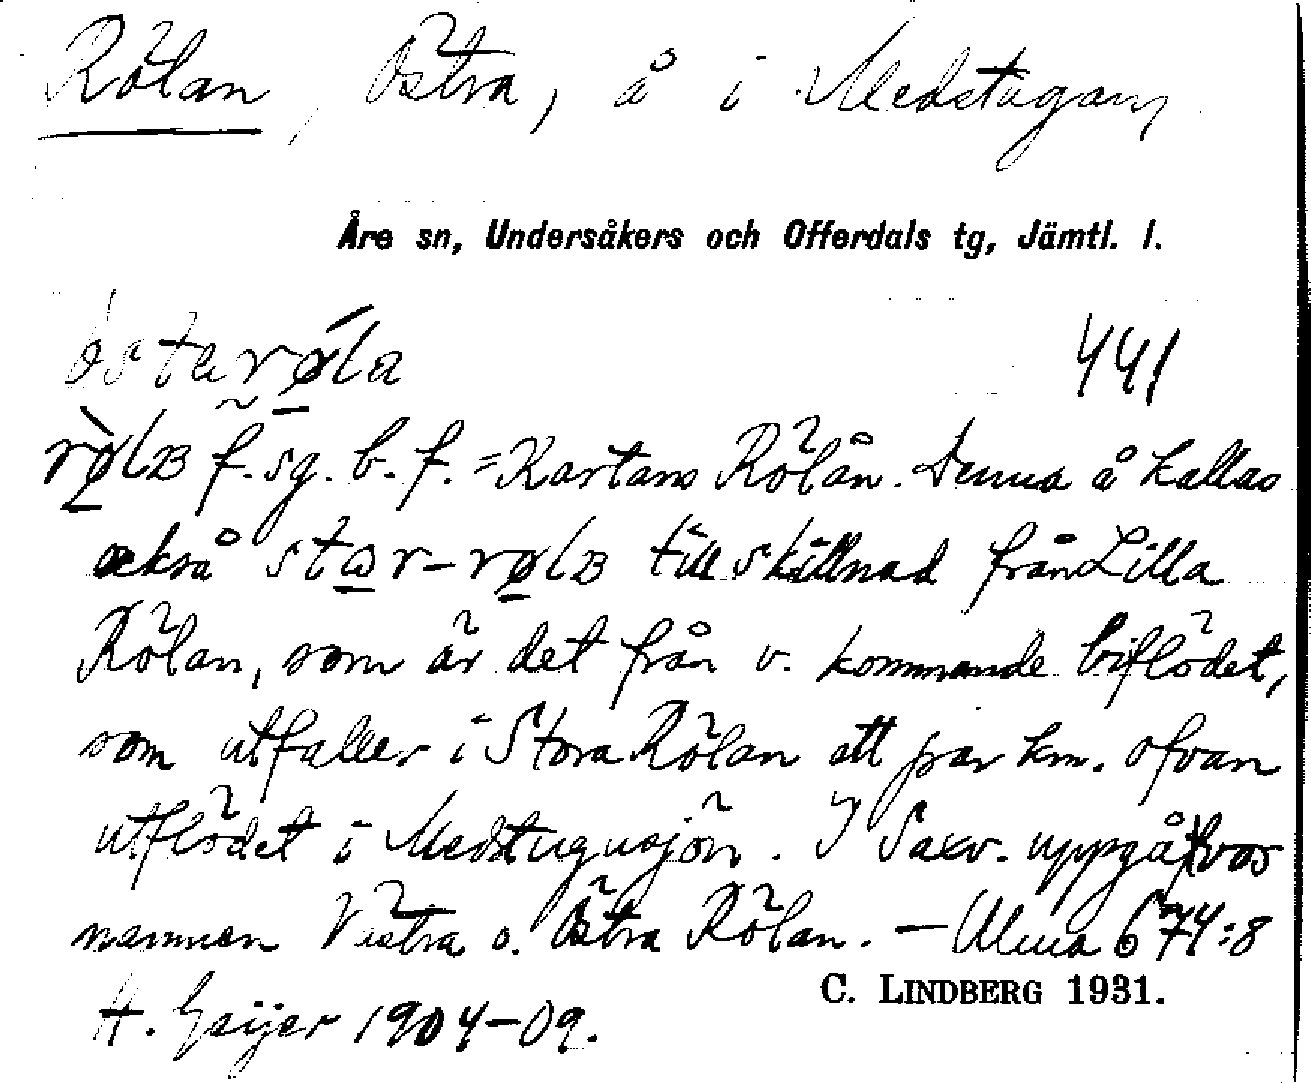 Rölan, Östra, å i Medstugan,
Åre sn, Undersåkers och Offerdals tg, Jämtl. l.
östarøla
441
rølʙ f. sg. b. f. = Kartans Rölån. Denna å kallas
också stωr-rølʙ till skillnad från Lilla
Rölan, som är det från v. kommande biflödet,
som utfaller i Stora Rölan ett par km. ofvan
utflödet i Medstugusjön. I Saxv. uppgåfvos
namnen Västra o. Östra Rölan. – Ulma 674:8
C. LINDBERG 1931.
H. Geijer 1904–09.